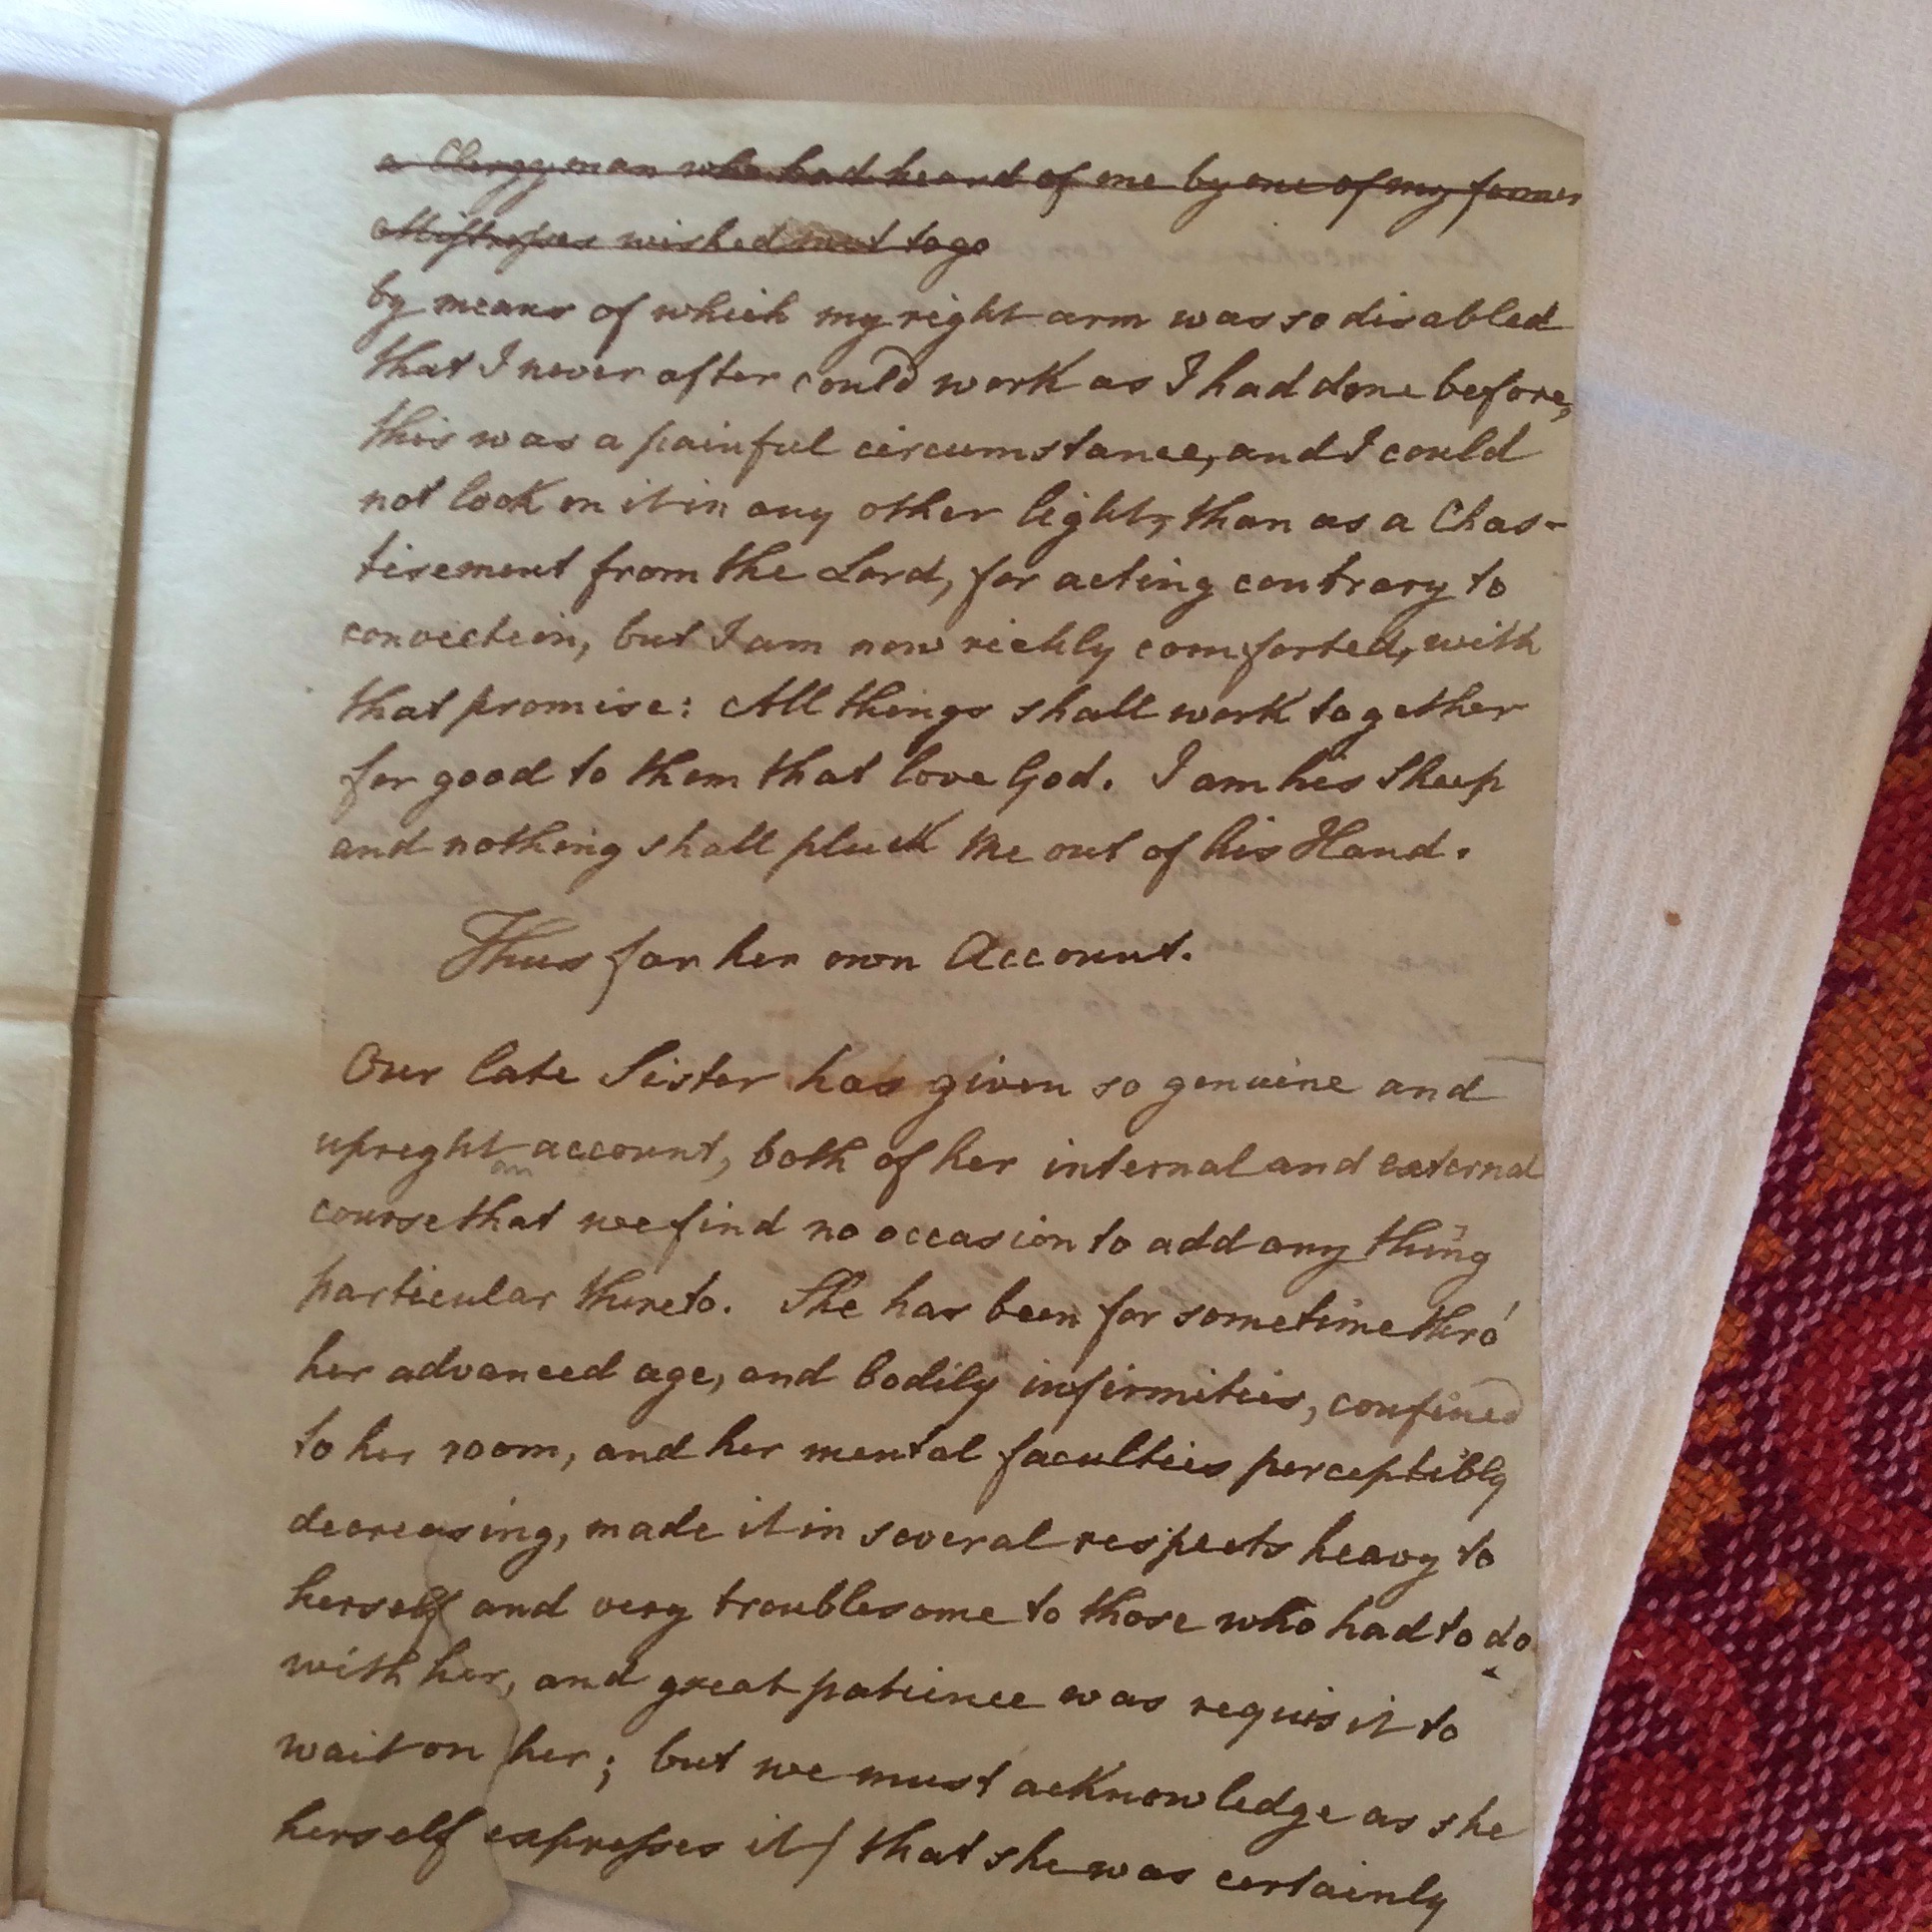 a Clergyman who had heard of me by one of my former
Mistresses wished to go
by means of which my right arm was so disabled
that I never after could work as I had done before,
this was a painful circumstance, and I could
not look on it in any other light, than as a Chas-
tisement from the Lord, for acting contrary to
convictein, but I am now richly comforted, with
that promise: All things shall work together
for good to them that love God. I am his Sheep
and nothing shall pluck me out of his Hand.
Thus far her own Account.
Our late Sister has given so genuine and
upreght account, both of her internal and external
an
course that we find no occasion to add any thing
particular thereto. She has been for sometime thro'
her advanced age, and bodily infirmities, confined
to her room, and her mental faculties perceptibly
decreasing, made it in several respects heavy to
herself and very troublesome to those who had to do
with her, and great patience was requisit to
wait on her; but we must acknowledge as she
herself expresses it/ that she was certainly